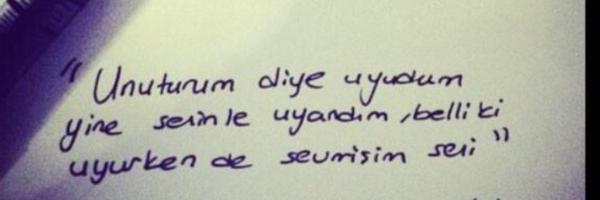 " Unuturum diye uyudum
yine seninle uyandım, belli ki
uyurken de sevmişim seni "